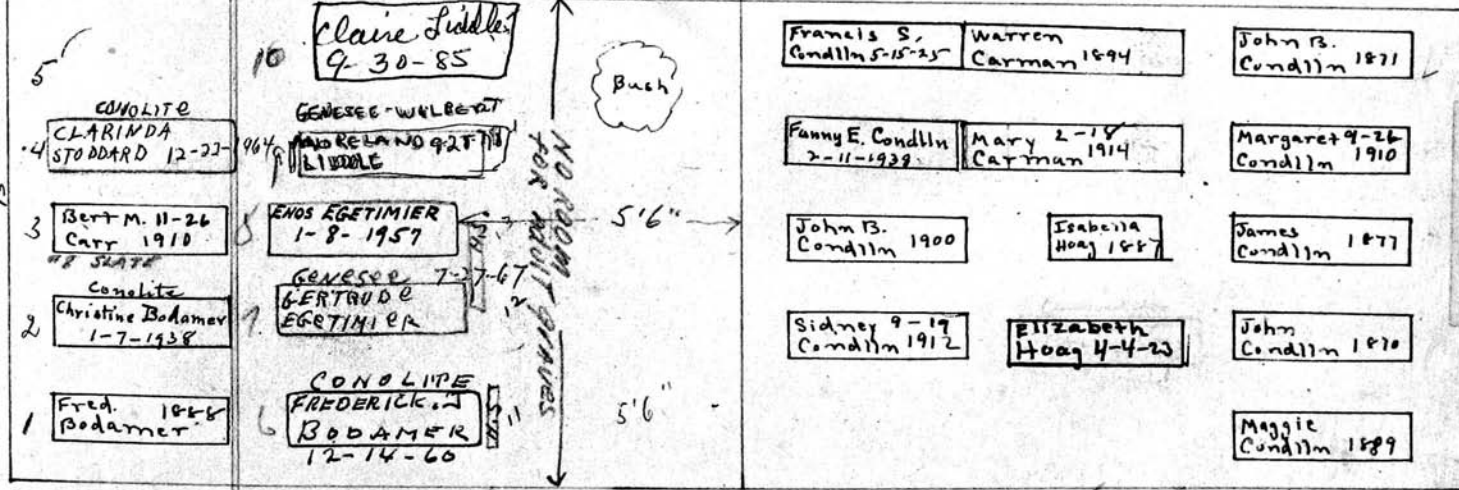 5
CONOLITE
CLARINDA
STODDARD 12-23-1964
4
3
Bert M. 11-26
Carr 1910
SLATE
Conolite
2
Christine Bodamer
1-7-1938
1
Fred. 1888
Bodamer
10
Claire Liddle
9-30-85
GENESEE-WILBERT
9
MORELAND 9-28-78
LIDDLE
8
ENOS EGETIMIER
1-8-1957
GENESEE 7-27-67
7.
GERTRUDE
EGETIMIER
CONOLITE
6
FREDERICK.J
BODAMER
12-14-60
NO ROOM
FOR ADULT GRAVES
Bush
5'6"
5'6"
Francis S.
Condlln 5-15-25
Warren
Carman 1894
John B.
Condlln 1871
Fanny E. Condlln
2-11-1939
Mary 2-18
Carman 1914
Margaret 9-26
Condlln 1910
John B.
Condlln 1900
Isabella
Hoag 1887
James
Condlln 1877
Sidney 9-19
Condlln 1912
Elizabeth
Hoag 4-4-23
John
Condlln 1870
Maggie
Condlln 1889